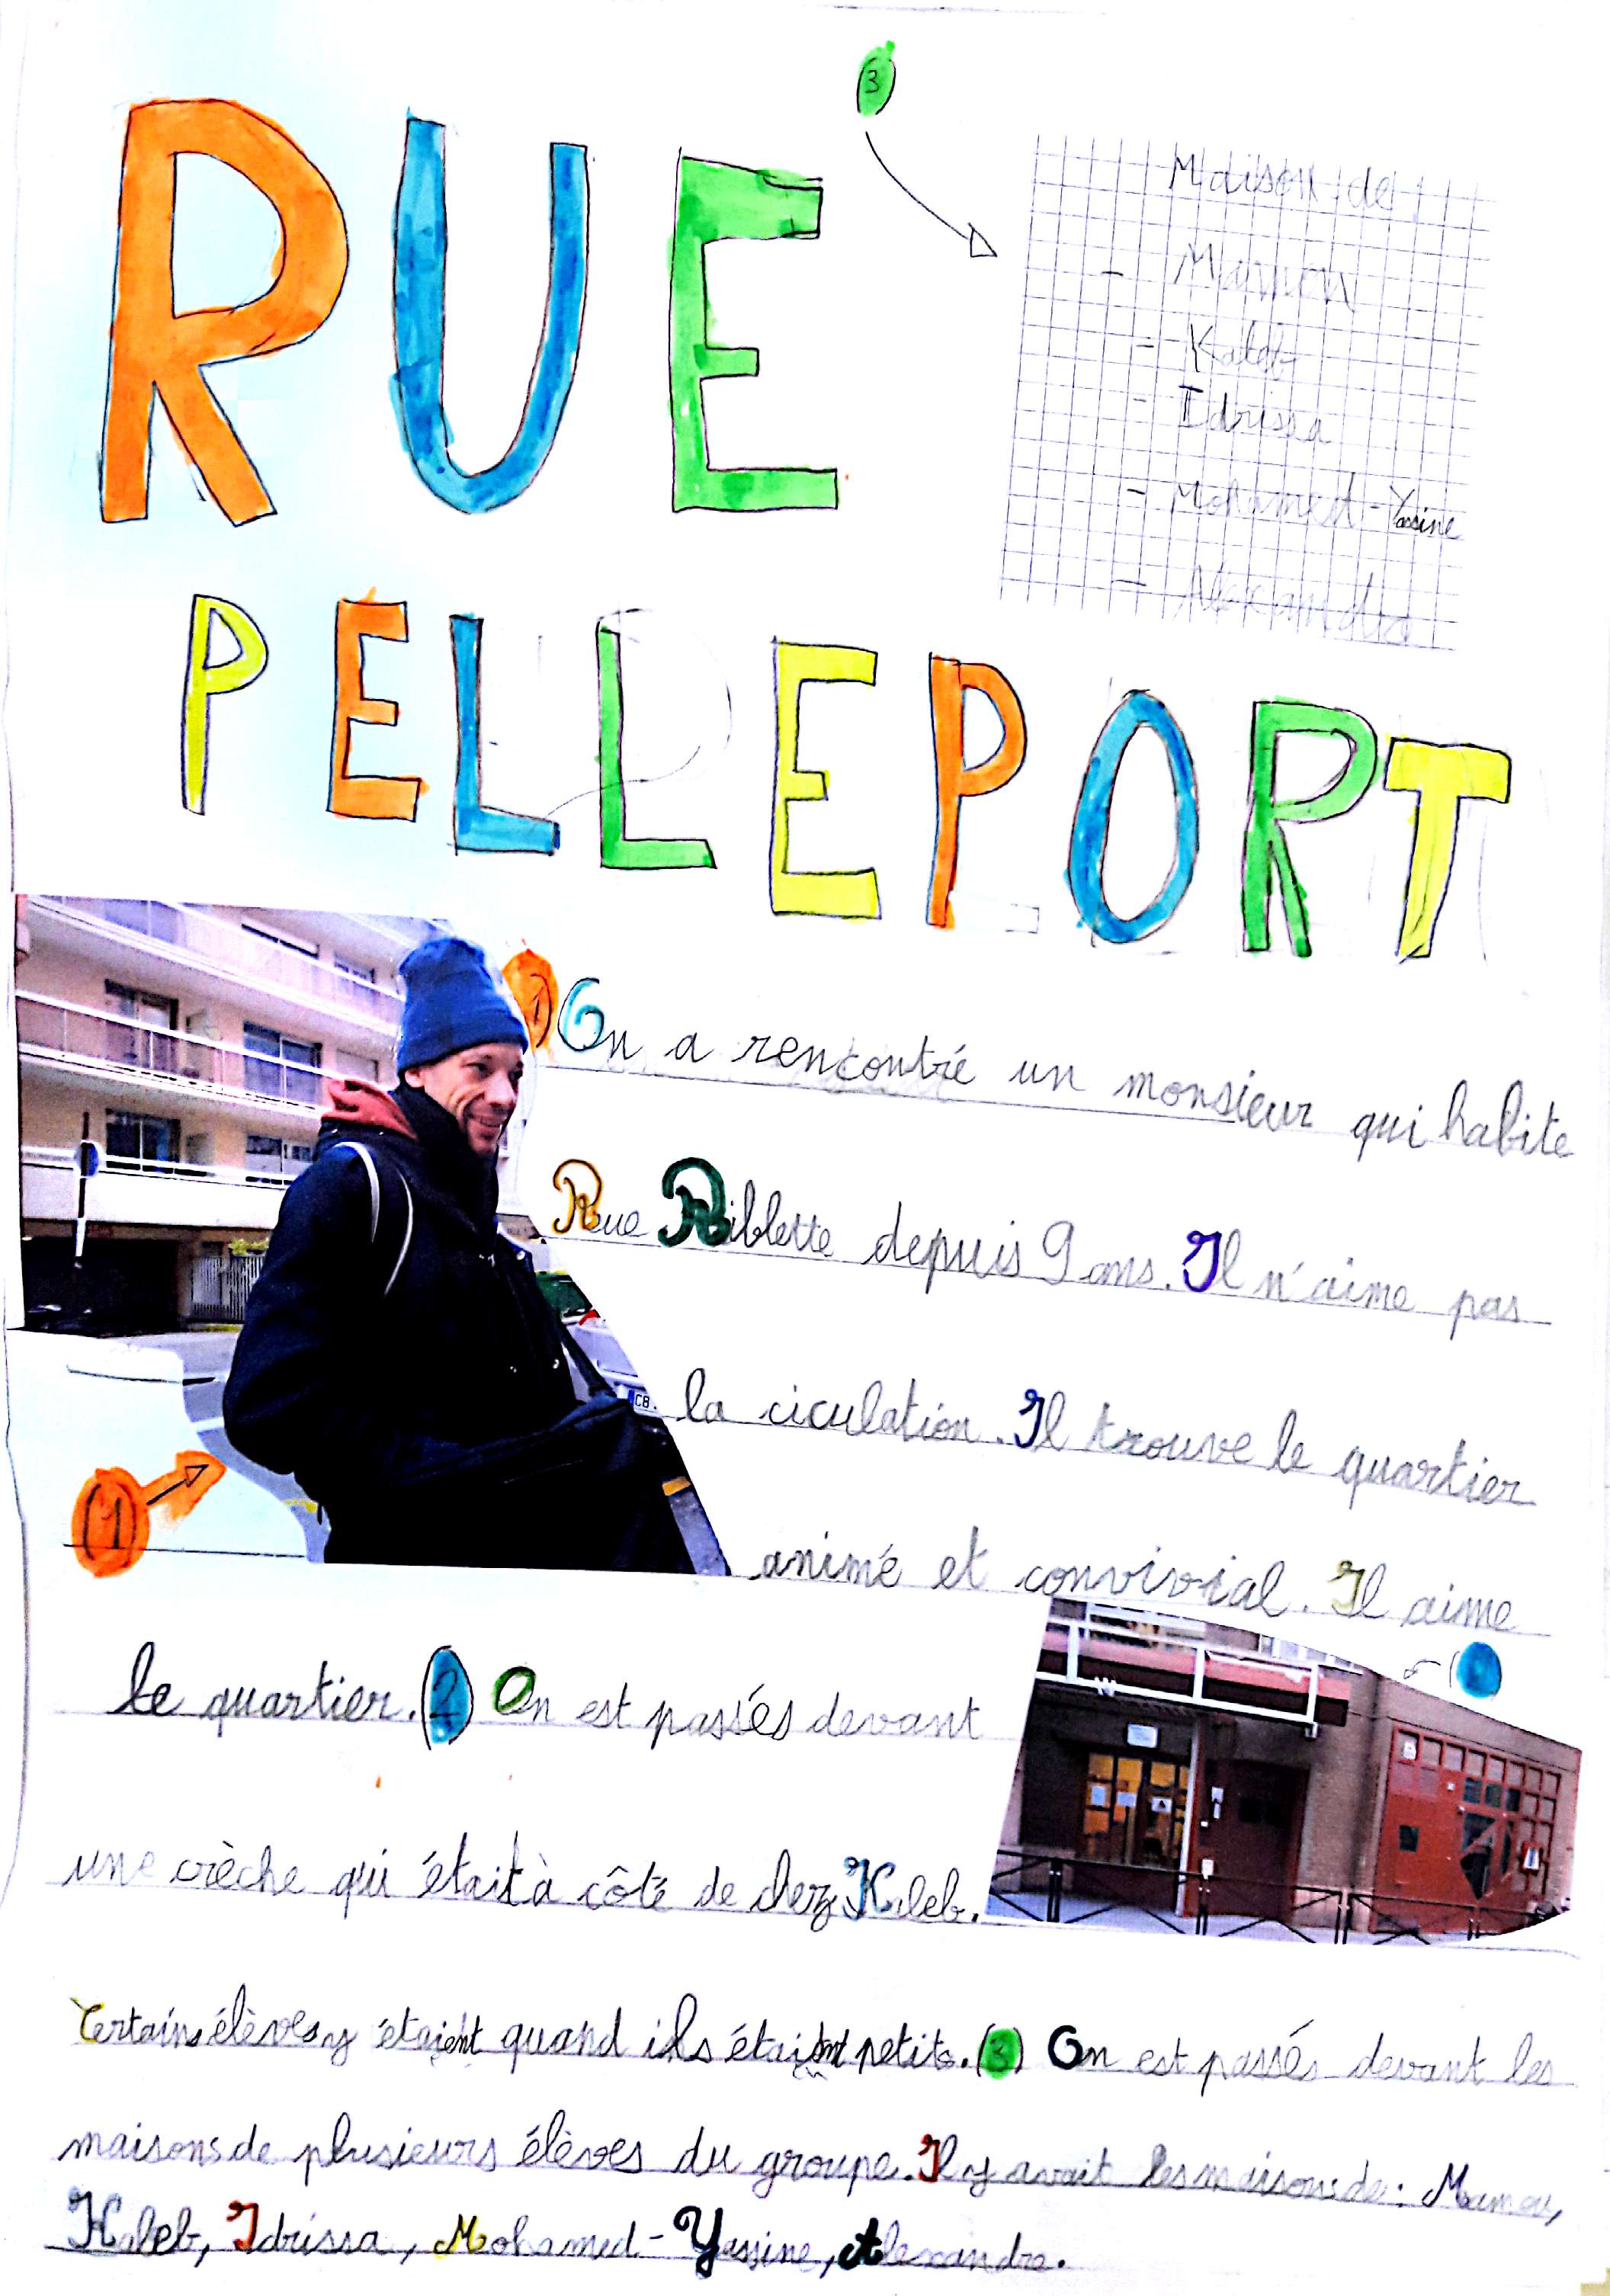 RUE
3
Maison de
- Mamou
- Kaleb
- Idrissa
- Mohamed-Yassine
- Alexandre
PELLEPORT
1 On a rencontré un monsieur qui habite
Rue Riblette depuis 9 ans. Il n'aime pas
la ciculation. Il trouve le quartier
animé et convivial. Il aime
le quartier. (2) On est passés devant
une crèche qui était à côté de chez Kaleb.
Certains élèves y étaient quand ils étaient petits. (3) On est passés devant les
maisons de plusieurs élèves du groupe. Il y avait les maisons de : Mamou,
Kaleb, Idrissa, Mohamed-Yassine, Alexandre.
1
CB